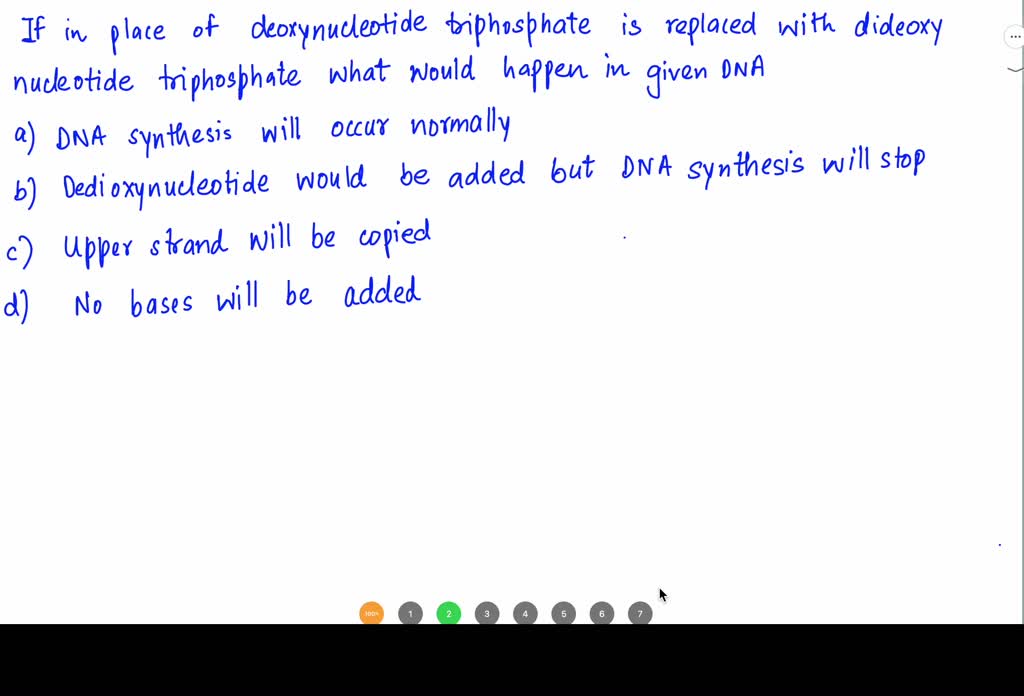 If in place of deoxynucleotide triphosphate is replaced with dideoxy
nucleotide triphosphate what would happen in given DNA
a) DNA synthesis will occur normally
b) Dedioxynucleotide would be added but DNA synthesis will stop
c) Upper strand will be copied
d) No bases will be added
100% 1 2 3 4 5 6 7